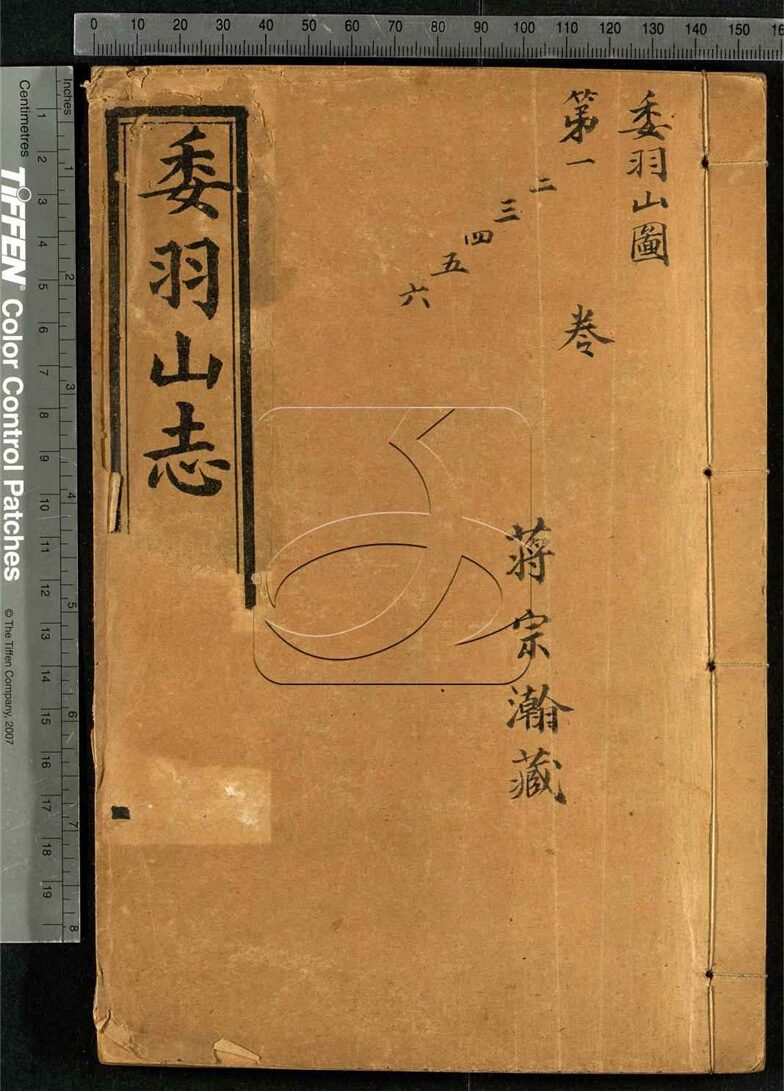 委羽山圖
第一
二
三
四
五
六
卷
蔣宗瀚藏
委羽山志
0 10 20 30 40 50 60 70 80 90 100 110 120 130 140 150
Inches
1 2 3 4 5 6 7 8
Centimetres
1 2 3 4 5 6 7 8 9 10 11 12 13 14 15 16 17 18 19
TIFFEN® Color Control Patches
© The Tiffen Company, 2007